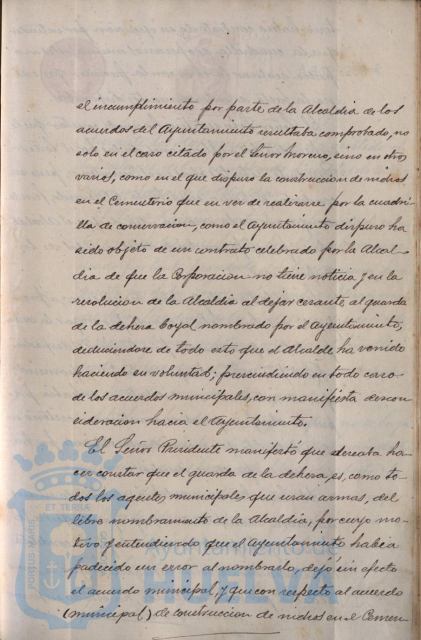 el incumplimiento por parte de la Alcaldia de los
acuerdos del Ayuntamiento resultaba comprobado, no
solo en el caso citado por el Señor Moreno, sino en otros
varios, como en el que dispuso la construccion de nichos
en el Cementerio que en vez de realizarse por la cuadri-
lla de conservacion, como el Ayuntamiento dispuso ha
sido objeto de un contrato celebrado por la Alcal-
dia de que la Corporacion no tiene noticia y en la
resolucion de la Alcaldia al dejar cesante al guarda
de la dehesa boyal nombrado por el Ayuntamiento,
deduciendose de todo esto que el Alcalde ha venido
haciendo su voluntad; prescindiendo en todo caso
de los acuerdos municipales, con manifiesta descon
sideracion hacia el Ayuntamiento.
El Señor Presidente manifestó que deseaba ha-
cer constar que el guarda de la dehesa, es, como to-
dos los agentes municipales que usan armas, del
libre nombramiento de la Alcaldia, por cuyo mo-
tivo, y entendiendo que el Ayuntamiento habia
padecido un error al nombrarlo, dejó sin efecto
el acuerdo municipal, y que con respecto al acuerdo
(municipal) de construccion de nichos en el Cemen
PORTUS MARIS
ET TERRÆ
Ayuntamiento de
HUELVA